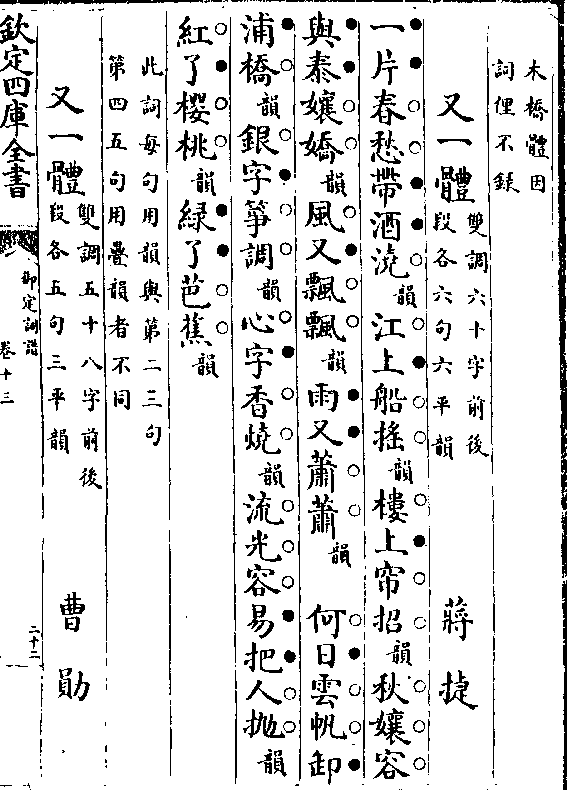 木橋體因
詞俚不録
又一體
雙調六十字前後
段各六句六平韻
蔣捷
一片春愁帶酒澆韻江上船搖韻樓上帘招韻秋孃容
與泰孃嬌韻風又飄飄韻雨又蕭蕭韻 何日雲帆卸
浦橋韻銀字箏調韻心字香燒韻流光容易把人抛韻
紅了櫻桃韻緑了芭蕉韻
此詞每句用韻與第二三句
第四五句用疊韻者不同
又一體
雙調五十八字前後
段各五句三平韻
曹勛
欽定四庫全書
御定詞譜
卷十三
二十二